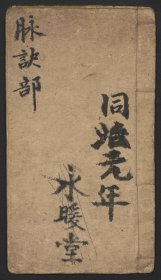 脉訣部
同治元年
永暖堂